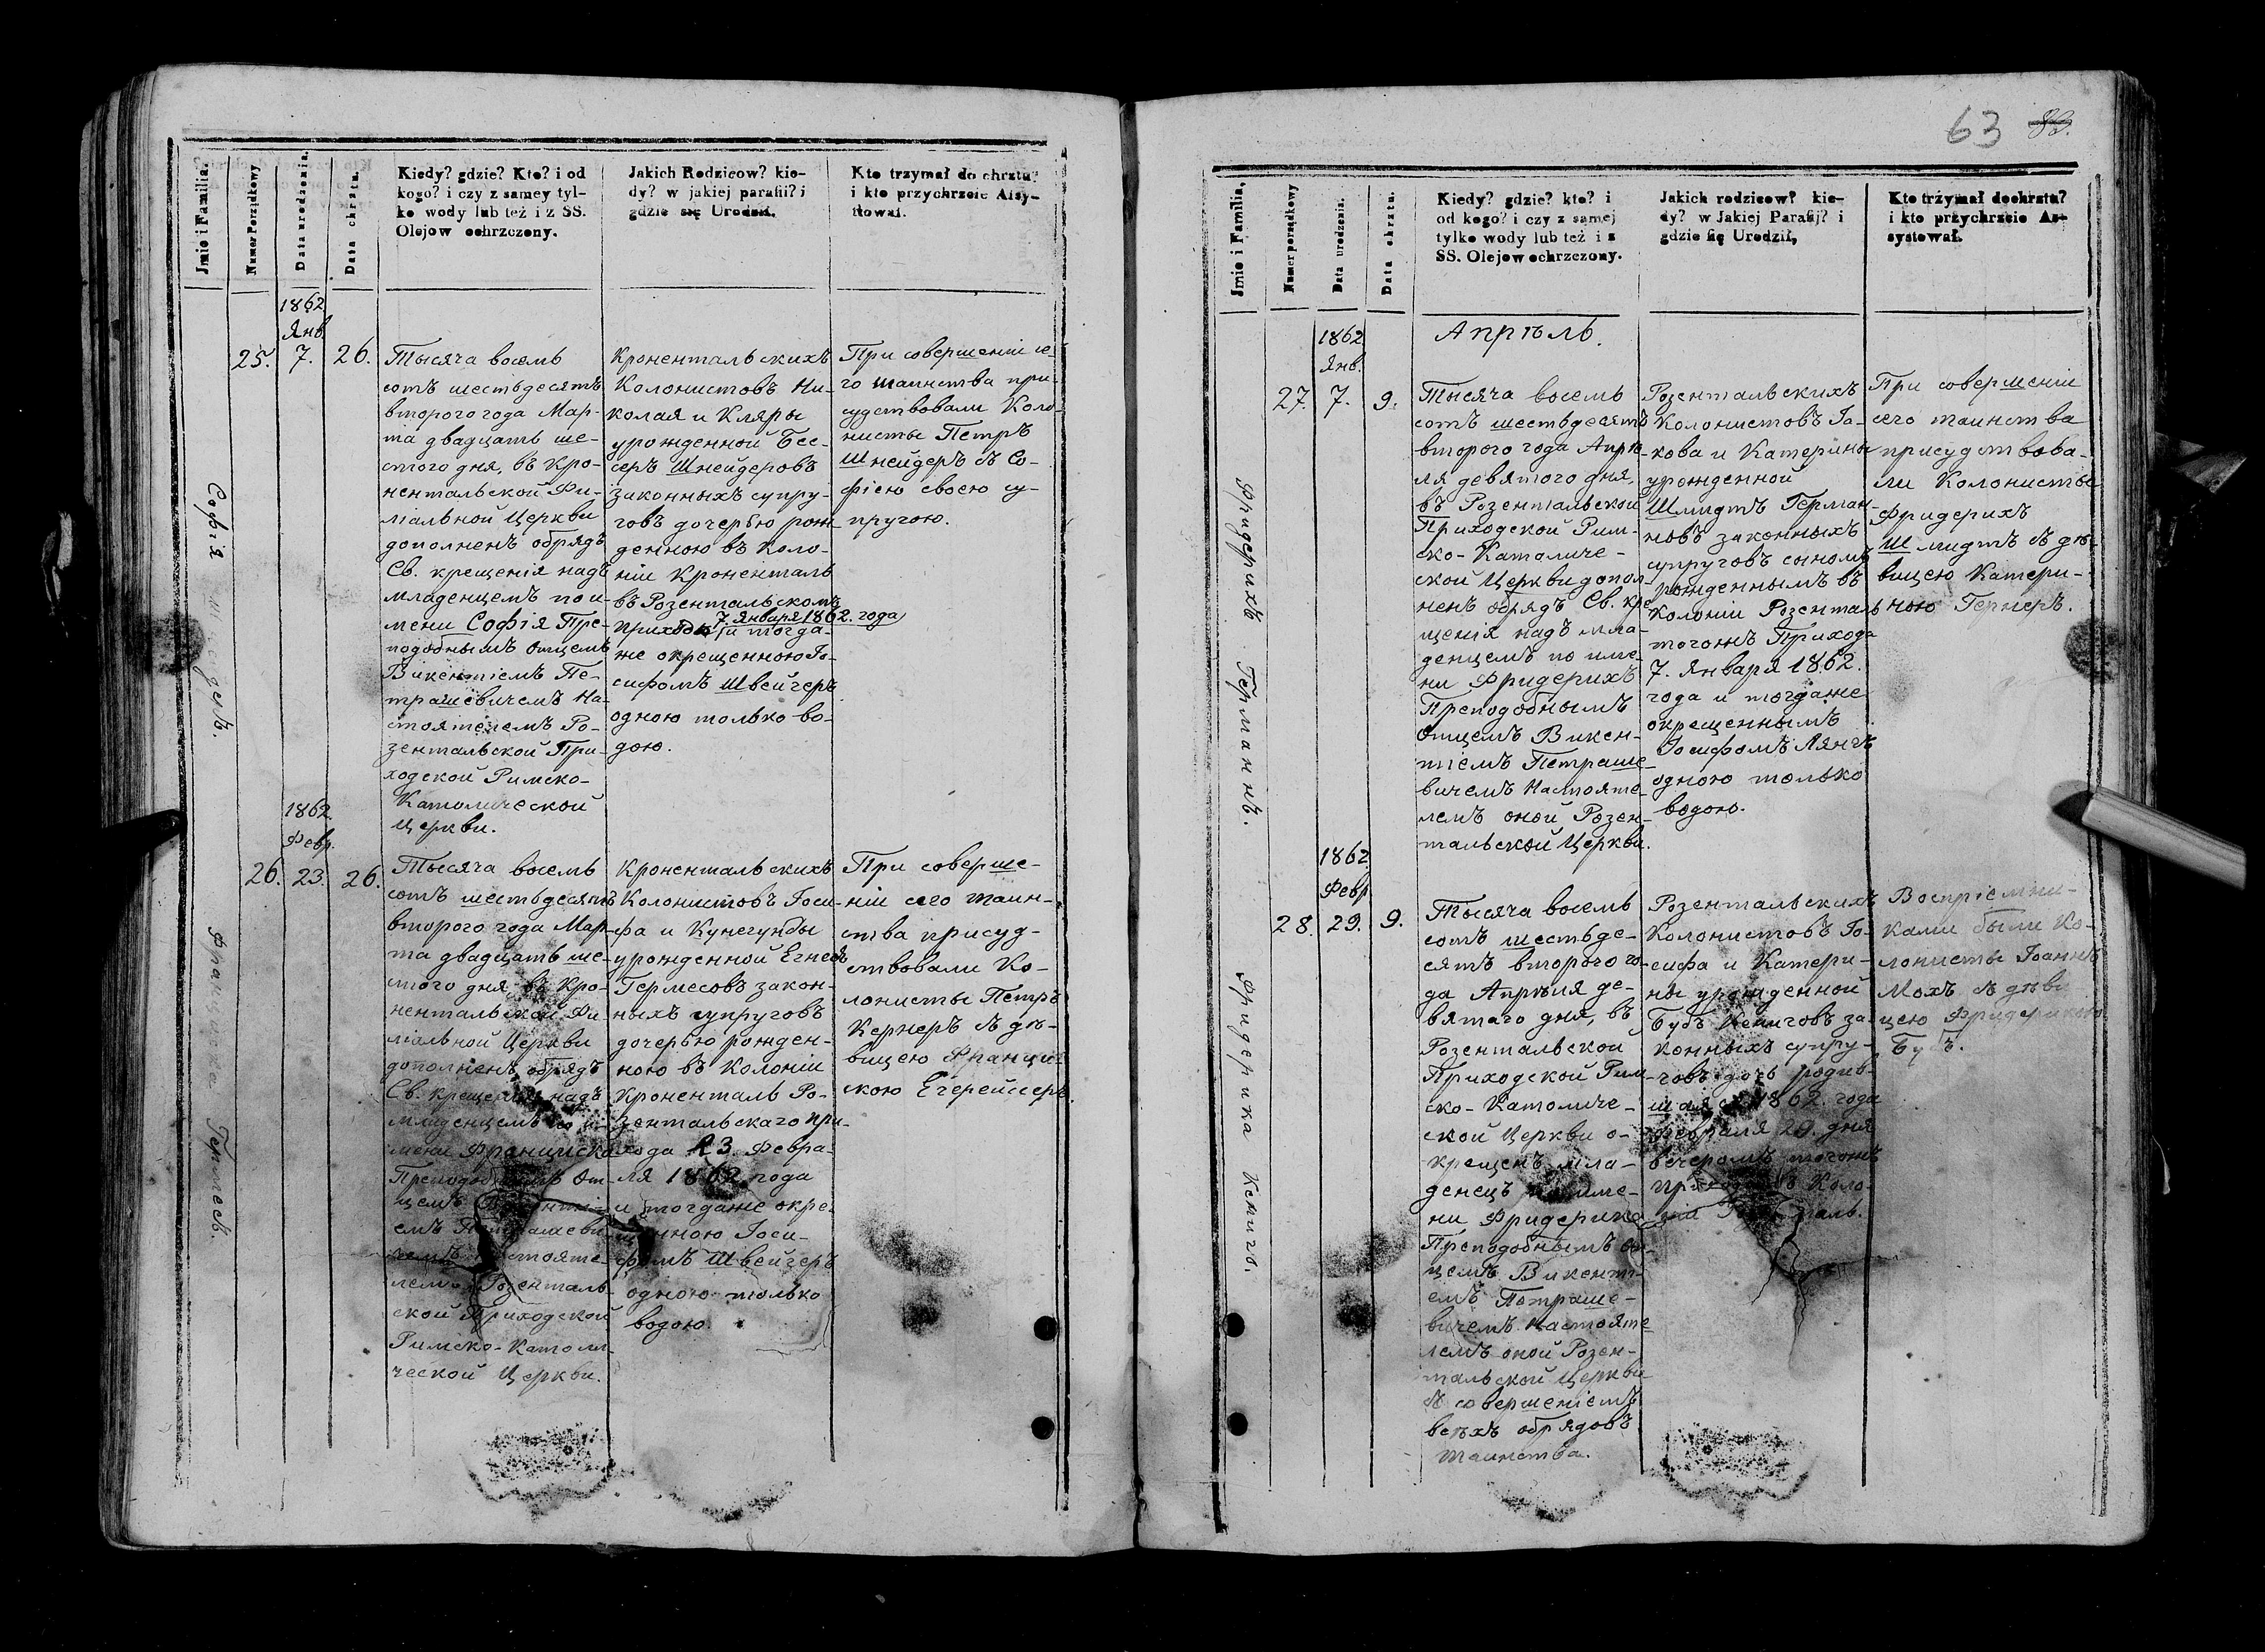 Jmie i Familia.
Numer Porządkowy
Data urodzenia.
Data chrztu.
Kiedy? gdzie? Kto? i od
kogo? i czy z samey tyl-
ko wody lub też i z SS.
Olejow ochrzczony.
Jakich Rodzicow? kie-
dy? w jakiej parafii? i
gdzie się Urodził.
Kto trzymał do chrztu?
i kto przychrzcie Assy-
stował.
1862
Янв
25. 7. 26.
Софія
Тысяча восемь
сотъ шестьдесятъ
втораго года Мар-
та двадцать ше-
стого дня, въ Кро-
нентальской Фи-
ліальной Церкви
дополненъ обрядъ
Св. крещенія надъ
младенцемъ по и-
мени Софія Пре-
подобнымъ Отцемъ
Викентіемъ Пе-
трашевичемъ На-
стоятелемъ Ро-
зентальской При-
ходской Римско-
Католической
Церкви.
Кронентальскихъ
Колонистовъ Ни-
колая и Кляры
урожденной Бес-
серъ Шнейдеровъ
законныхъ супру-
говъ дочерью рож-
денною въ Коло-
ніи Кроненталь
въ Розентальскомъ
7 Января 1862. года
приходѣ и тогда-
же окрещенною Іо-
сифомъ Швейгеръ
одною только во-
дою.
При совершеніи се-
го таинства при-
судствовали Коло-
нисты Петръ
Шнейдеръ съ Со-
фіею своею су-
пругою.
1862.
Февр.
26. 23. 26.
Франциска Гермесъ.
Тысяча восемь
сотъ шестьдесятъ
второго года Мар-
та двадцать ше-
стого дня, въ Кро-
нентальской Фи-
ліальной Церкви
дополненъ обрядъ
Св. крещенія надъ
младенцемъ по и-
мени Франциска
Преподобнымъ От-
цемъ Викенті-
емъ Петрашеви-
чемъ Настояте-
лемъ Розенталь-
ской Приходской
Римско-Католи-
ческой Церкви.
Кронентальскихъ
Колонистовъ Іоси-
фа и Кунегунды
урожденной Егнеръ
Гермесовъ закон-
ныхъ супруговъ
дочерью рожден-
ною въ Колоніи
Кроненталь Ро-
зентальскаго при-
хода 23. Февра-
ля 1862. года
и тогдаже окре-
щенною Іоси-
фомъ Швейгеръ
одною только
водою.
При соверше-
ніи сего таин-
ства присуд-
ствовали Ко-
лонисты Петръ
Кернеръ съ дѣ-
вицею Францис-
кою Егерейсеръ.
63 83.
Jmie i Familia.
Numer porządkowy
Data urodzenia.
Data chrztu.
Kiedy? gdzie? kto? i
od kogo? i czy z samej
tylko wody lub też i z
SS. Olejow ochrzczony.
Jakich rodzicow? kie-
dy? w Jakiej Parafij? i
gdzie się Urodził,
Kto trzymał dochrztu?
i kto przychrzcie As-
systował.
Апрѣль.
1862
Янв.
27. 7. 9.
Фридерихъ Германъ.
Тысяча восемь
сотъ шестьдесятъ
второго года Апрѣ-
ля девятого дня,
въ Розентальской
Приходской Рим-
ско-Католиче-
ской Церкви допол-
ненъ обрядъ Св. кре-
щенія надъ мла-
денцемъ по име-
ни Фридерихъ
Преподобнымъ
Отцемъ Викен-
тіемъ Петраше-
вичемъ Настояте-
лемъ оной Розен-
тальской Церкви.
Розентальскихъ
Колонистовъ Іа-
кова и Катерины
урожденной
Шмидтъ Герман-
новъ законныхъ
супруговъ сыномъ
рожденнымъ въ
Колоніи Розенталь
тогожъ Прихода
7. Января 1862.
года и тогдаже
окрещеннымъ
Іосифомъ Лянгъ
одною только
водою.
При совершеніи
сего таинства
присудствова-
ли Колонисты
Фридерихъ
Шмидтъ съ дѣ-
вицею Катери-
ною Гернеръ.
1862
Февр
28. 29. 9.
Фридерика Кенигъ.
Тысяча восемь
сотъ шестьде-
сятъ второго го-
да Апрѣля де-
вятаго дня, въ
Розентальской
Приходской Рим-
ско-Католиче-
ской Церкви о-
крещенъ мла-
денецъ по име-
ни Фридерика
Преподобнымъ От-
цемъ Викенті-
емъ Петраше-
вичемъ Настояте-
лемъ оной Розен-
тальской Церкви
съ совершеніемъ
всѣхъ обрядовъ
таинства.
Розентальскихъ
Колонистовъ Іо-
сифа и Катери-
ны урожденной
Бубъ Кениговъ за-
конныхъ супру-
говъ дочь родив-
шаяся 1862. года
Февраля 29. дня
вечеромъ тогожъ
прихода въ Коло-
ніи Розенталь.
Воспріемни-
ками были Ко-
лонисты Іоаннъ
Мохъ съ дѣви-
цею Фридерикою
Бубъ.